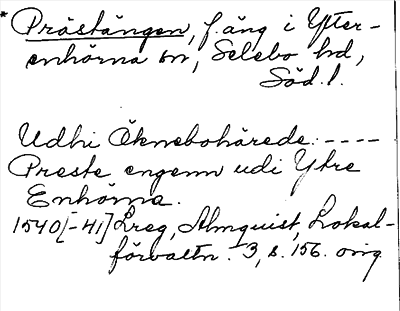 * Prästängen, f. äng i Ytter-
enhörna sn, Selebo hd,
Söd. l.
Udhi Öknebohärede: ----
Preste engenn udi Ytre
Enhörna.
1540[-41] Lreg, Almquist, Lokal-
förvaltn. 3, s. 156. orig